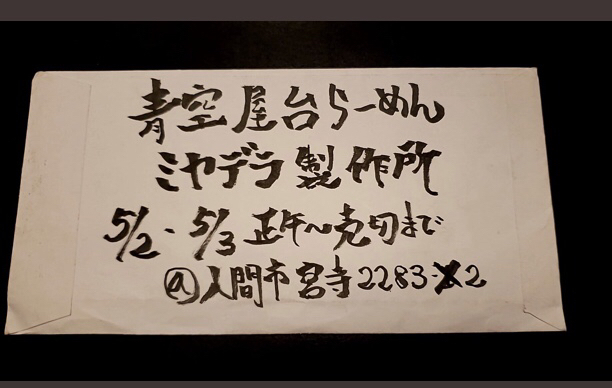 青空屋台らーめん
ミヤデラ製作所
5/2・5/3 正午〜売切まで
@人間市宮寺2283-2